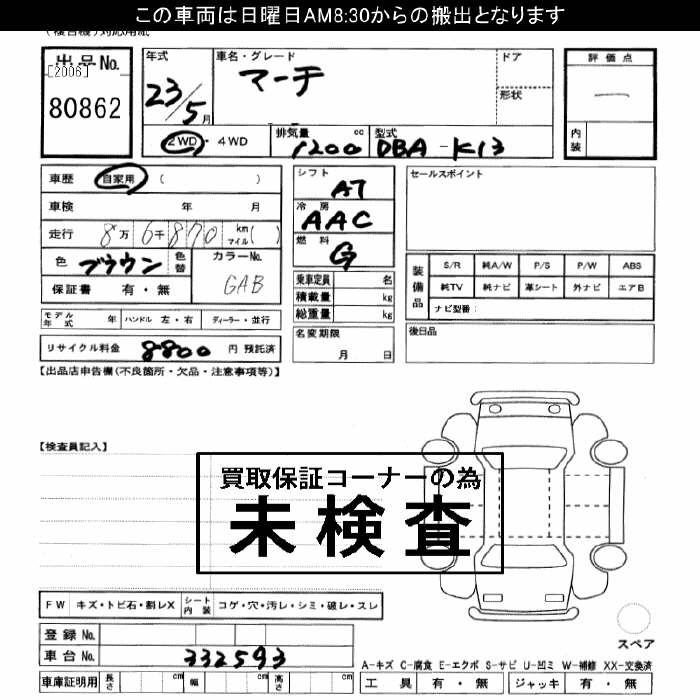 この車両は日曜日AM8:30からの搬出となります
(複合機)対応用紙
出品No.
[2006]
80862
年式
23/5月
車名・グレード
マーチ
ドア
形状
評価点
—
内装
2WD・4WD
排気量 1200 cc
型式 DBA-K13
車歴 自家用 ( )
車検 年 月
走行 8万6千870 km マイル( )
色 ブラウン
色替
カラーNo.
GAB
保証書 有・無
モデル年式 年
ハンドル 左・右
ディーラー・並行
リサイクル料金 8800 円 預託済
シフト
AT
冷房
AAC
燃料
G
乗車定員 名
積載量 kg
総重量 kg
名変期限
月 日
セールスポイント
装備品
S/R 純A/W P/S P/W ABS
純TV 純ナビ 革シート 外ナビ エアB
ナビ型番:
後日品
【出品店申告欄(不良箇所・欠品・注意事項等)】
【検査員記入】
買取保証コーナーの為
未検査
FW キズ・トビ石・割レX
シート内装 コゲ・穴・汚レ・シミ・破レ・スレ
登録No.
車台No. 332593
車庫証明用 長さ cm 幅 cm 高さ cm
スペア
A-キズ C-腐食 E-エクボ S-サビ U-凹ミ W-補修 XX-交換済
工具 有・無 ジャッキ 有・無